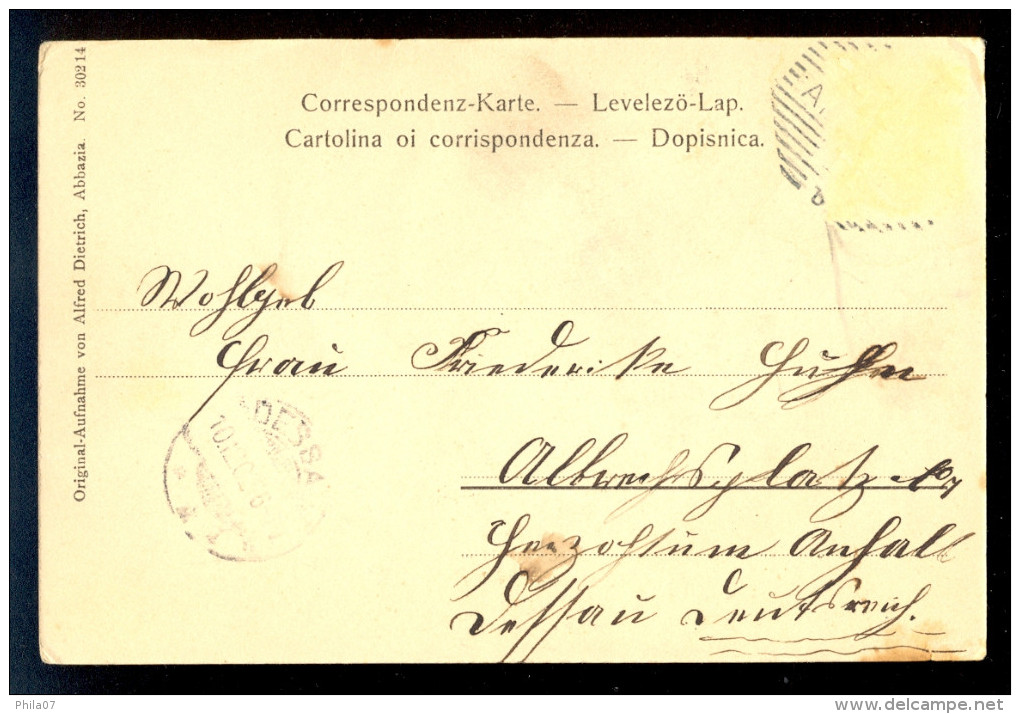 Correspondenz-Karte. — Levelezö-Lap.
Cartolina oi corrispondenza. — Dopisnica.
Original-Aufnahme von Alfred Dietrich, Abbazia. No. 30214
Wohlgeb
Frau Friederike Huhn
Albrechtsplatz
Herzogtum Anhalt
Dessau Deutsreich.
DESSA
Phila07
delcampe.net